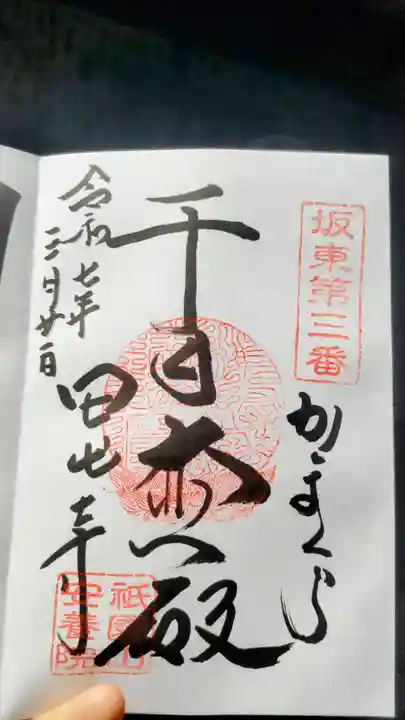 坂東第三番
かまくら
千手大悲殿
令和七年
三月廿一日
田代寺
祇園山
安養院